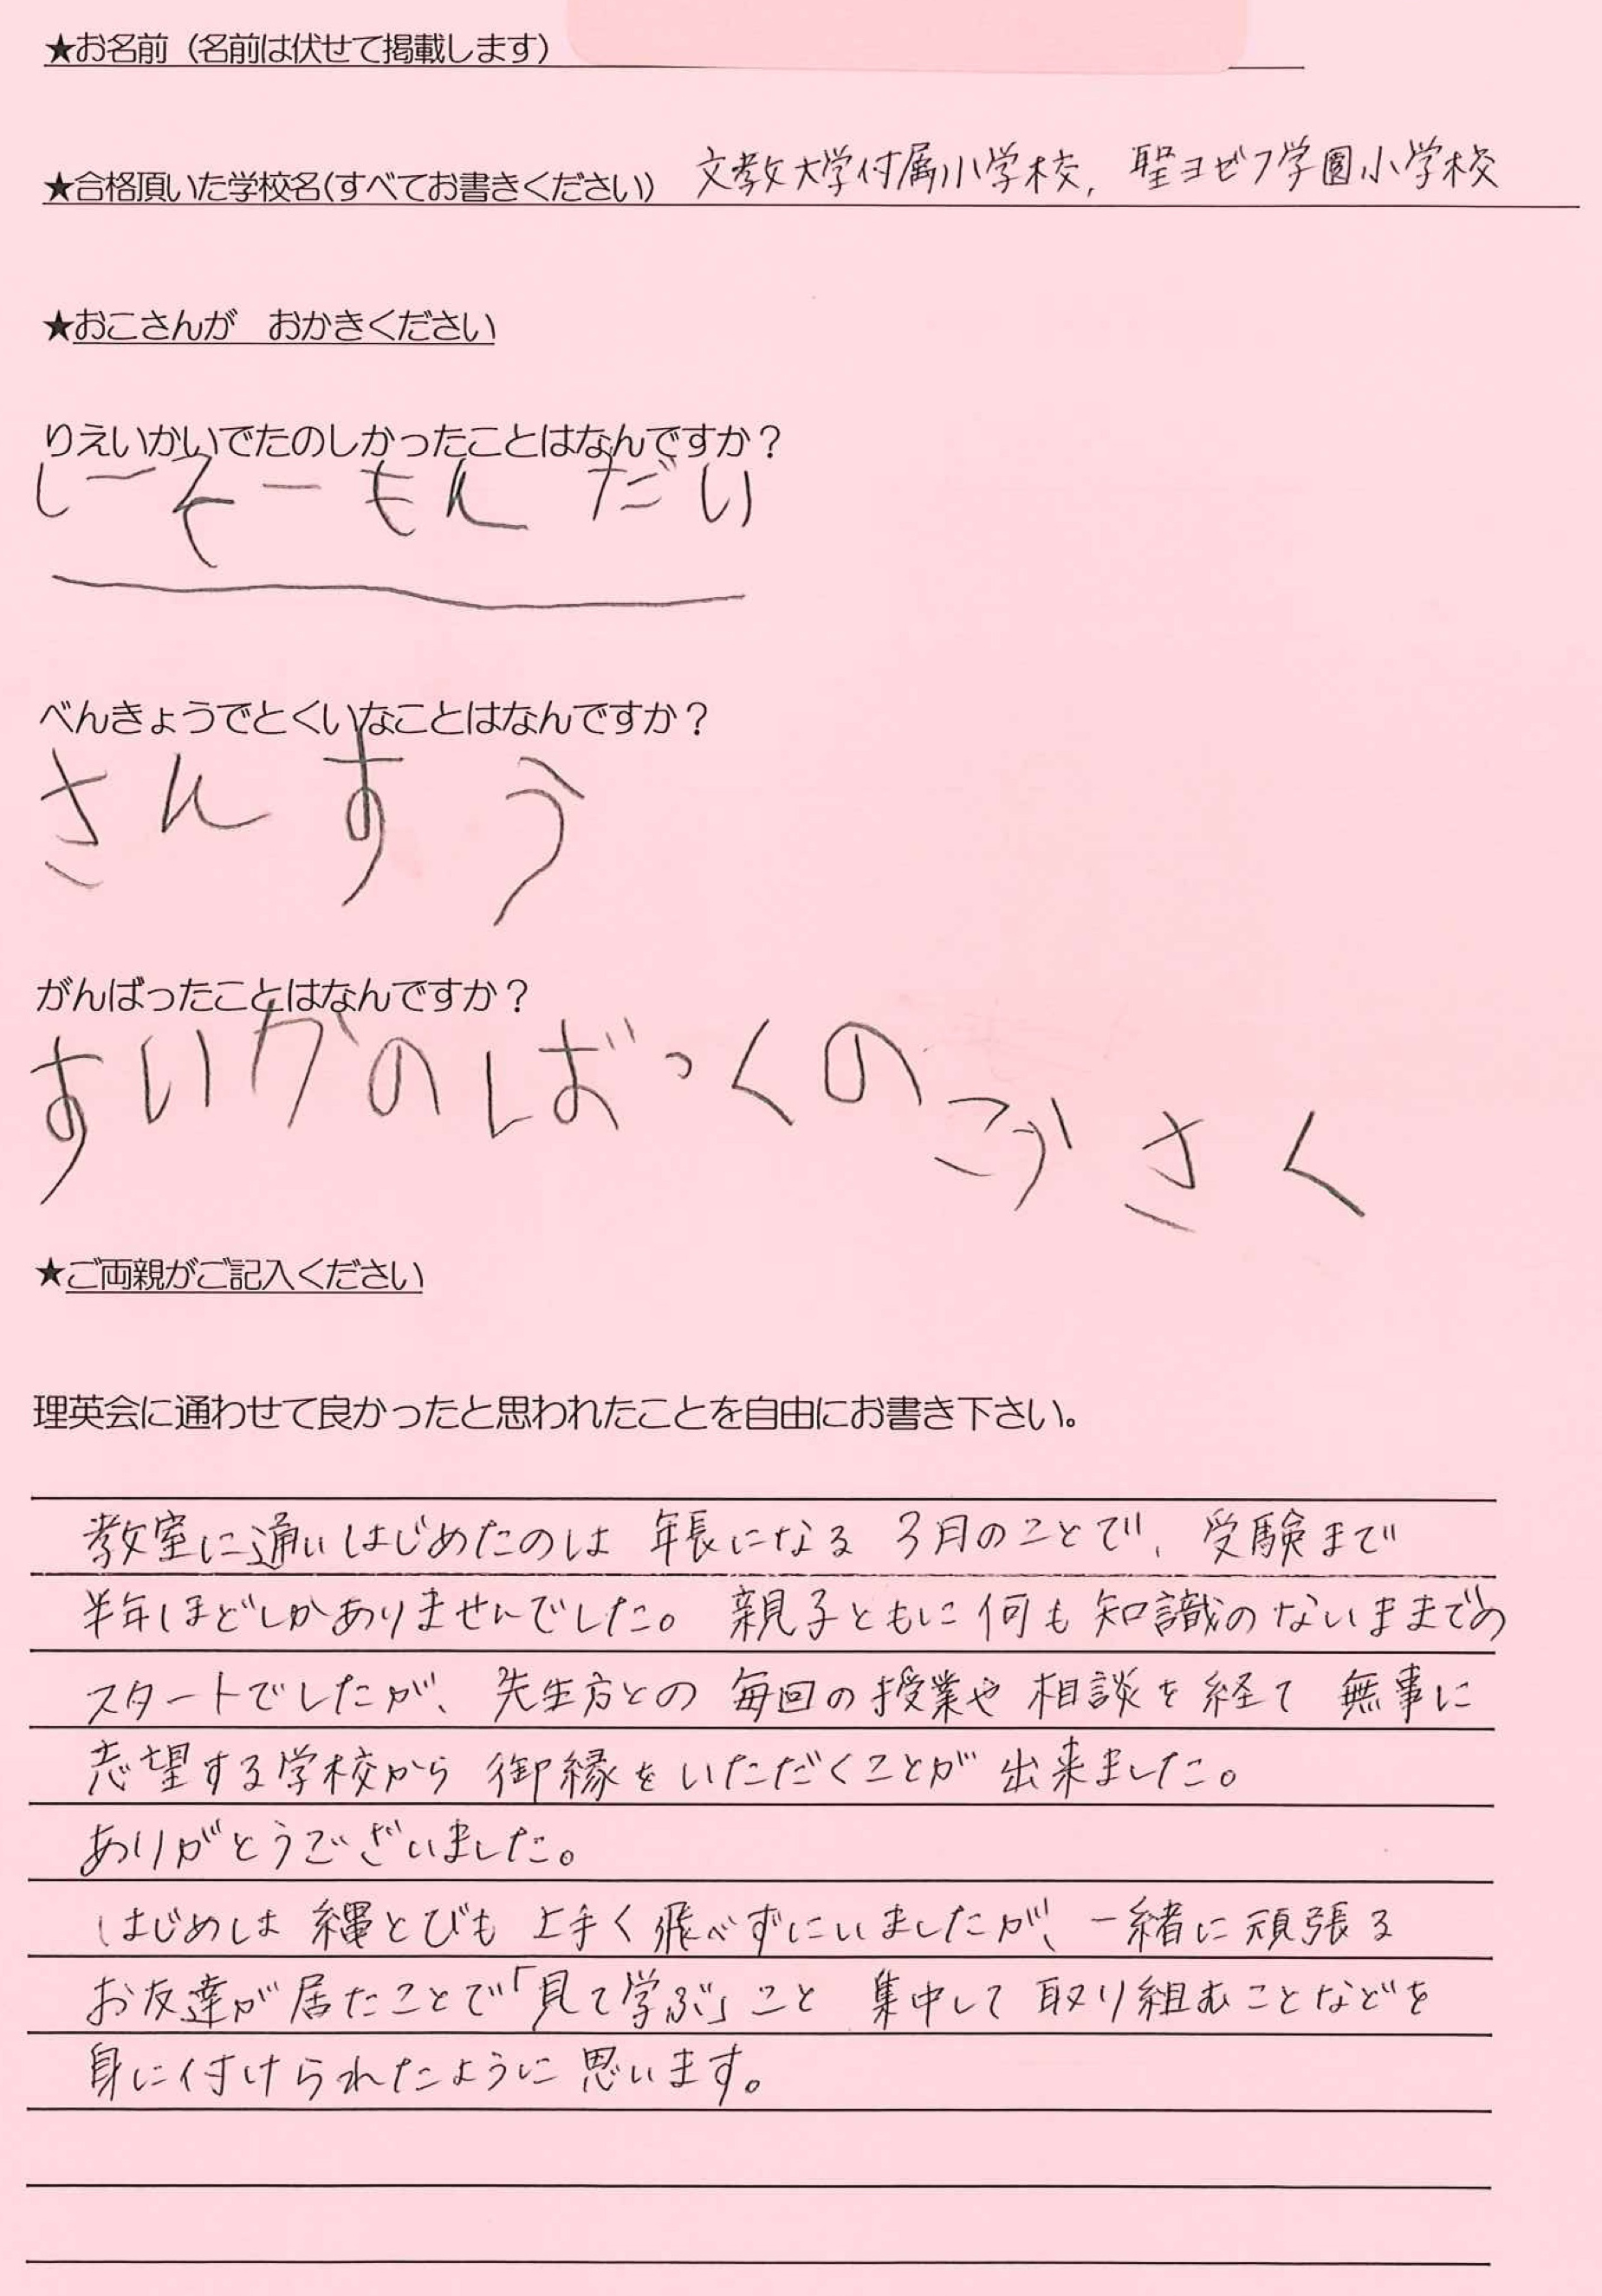 ★お名前(名前は伏せて掲載します)
★合格頂いた学校名(すべてお書きください) 文教大学付属小学校, 聖ヨゼフ学園小学校
★おこさんが おかきください
りえいかいでたのしかったことはなんですか?
しーそーもんだい
べんきょうでとくいなことはなんですか?
さんすう
がんばったことはなんですか?
すいかのばっくのこうさく
★ご両親がご記入ください
理英会に通わせて良かったと思われたことを自由にお書き下さい。
教室に通いはじめたのは 年長になる 3月のことで、受験まで
半年ほどしかありませんでした。 親子ともに何も知識のないままでの
スタートでしたが、先生方との 毎回の授業や相談を経て 無事に
志望する学校から 御縁をいただくことが出来ました。
ありがとうございました。
はじめは 縄とびも 上手く飛べずにいましたが、一緒に頑張る
お友達が居たことで「見て学ぶ」こと 集中して取り組むことなどを
身に付けられたように思います。